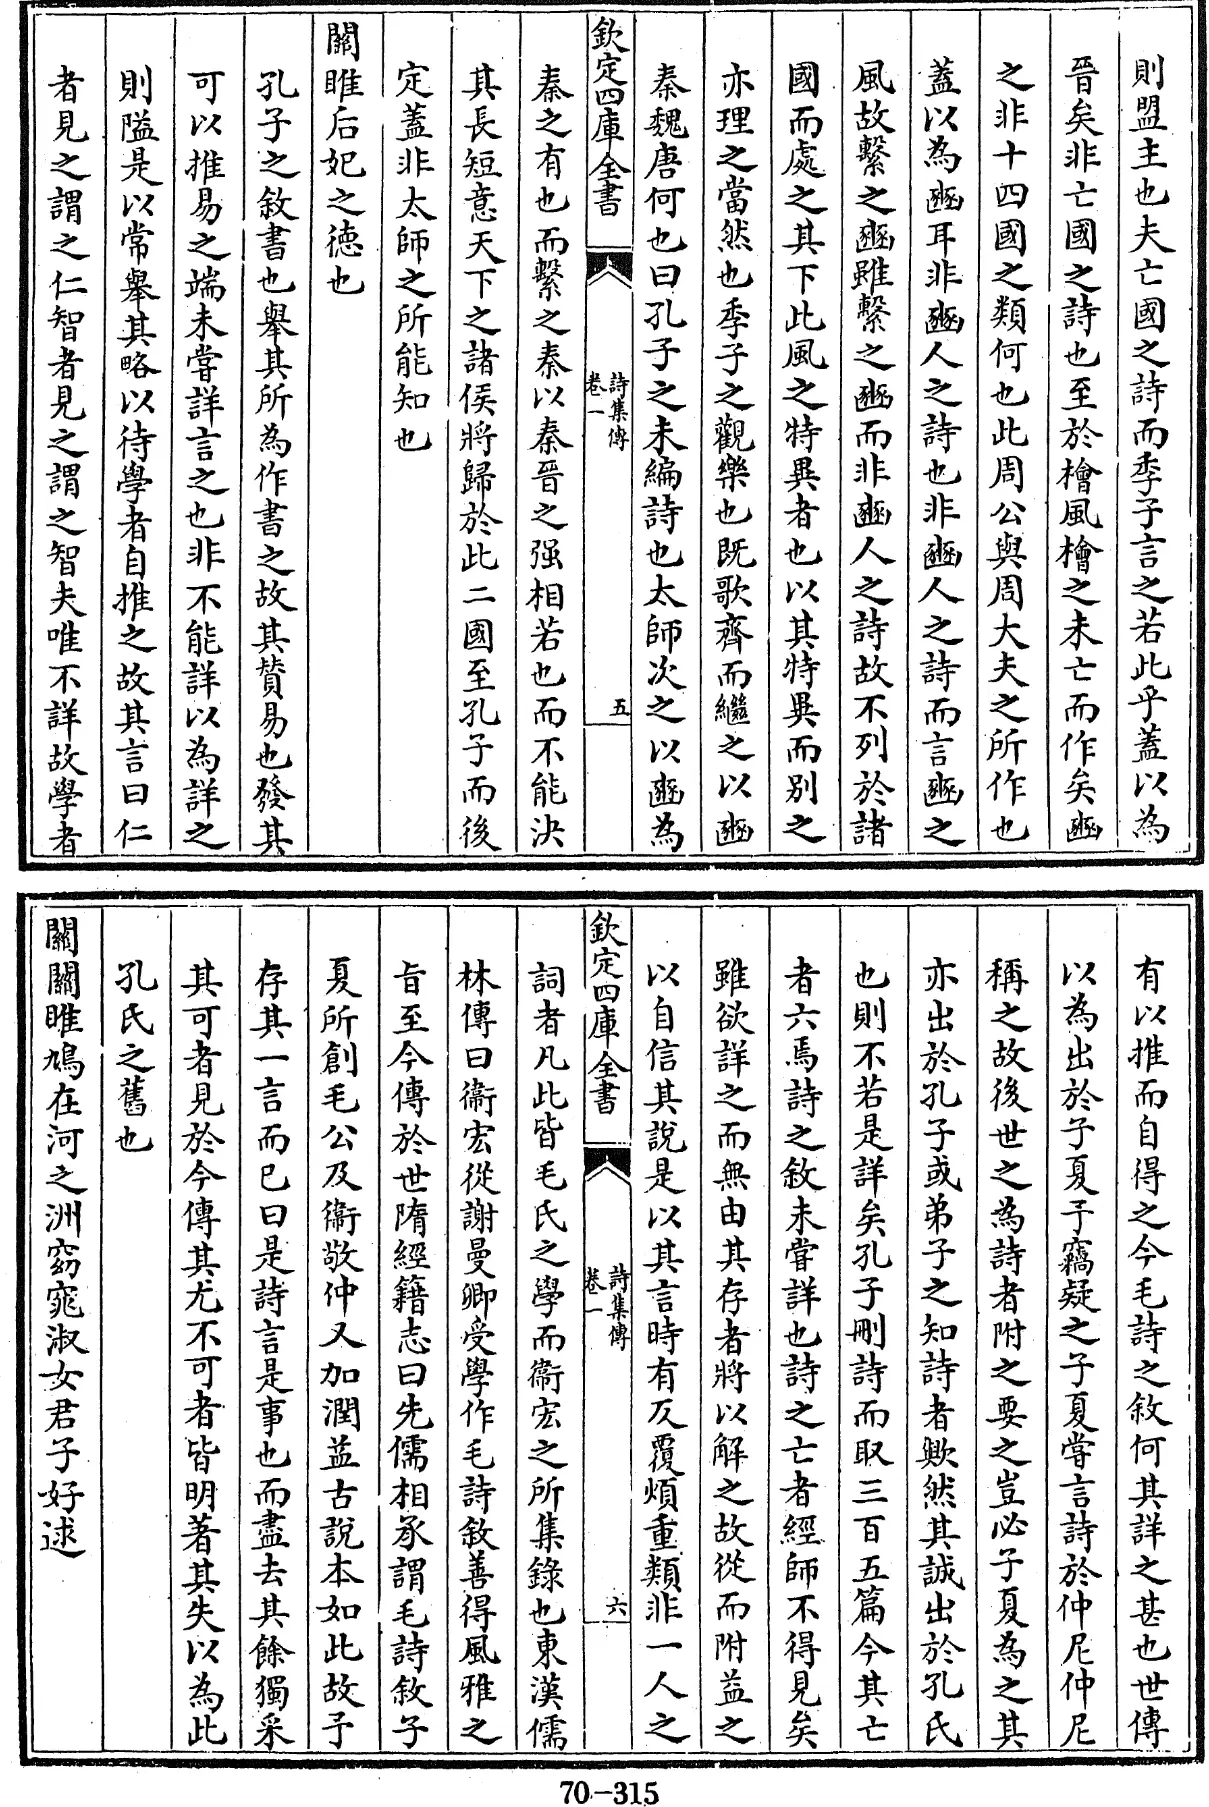 則盟主也夫亡國之詩而季子言之若此乎蓋以為
晉矣非亡國之詩也至於檜風檜之未亡而作矣豳
之非十四國之類何也此周公與周大夫之所作也
蓋以為豳耳非豳人之詩也非豳人之詩而言豳之
風故繫之豳雖繫之豳而非豳人之詩故不列於諸
國而處之其下此風之特異者也以其特異而別之
亦理之當然也季子之觀樂也既歌齊而繼之以豳
秦魏唐何也曰孔子之未編詩也太師次之以豳為
欽定四庫全書
詩集傳
卷一
五
秦之有也而繫之秦以秦晉之强相若也而不能決
其長短意天下之諸侯將歸於此二國至孔子而後
定蓋非太師之所能知也
關雎后妃之德也
孔子之敘書也舉其所為作書之故其贊易也發其
可以推易之端未嘗詳言之也非不能詳以為詳之
則隘是以常舉其略以待學者自推之故其言曰仁
者見之謂之仁智者見之謂之智夫唯不詳故學者
有以推而自得之今毛詩之敘何其詳之甚也世傳
以為出於子夏予竊疑之子夏嘗言詩於仲尼仲尼
稱之故後世之為詩者附之要之豈必子夏為之其
亦出於孔子或弟子之知詩者歟然其誠出於孔氏
也則不若是詳矣孔子刪詩而取三百五篇今其亡
者六焉詩之敘未嘗詳也詩之亡者經師不得見矣
雖欲詳之而無由其存者將以解之故從而附益之
以自信其說是以其言時有反覆煩重類非一人之
欽定四庫全書
詩集傳
卷一
六
詞者凡此皆毛氏之學而衞宏之所集錄也東漢儒
林傳曰衞宏從謝曼卿受學作毛詩敘善得風雅之
旨至今傳於世隋經籍志曰先儒相承謂毛詩敘子
夏所創毛公及衞敬仲又加潤益古說本如此故予
存其一言而已曰是詩言是事也而盡去其餘獨采
其可者見於今傳其尤不可者皆明著其失以為此
孔氏之舊也
關關雎鳩在河之洲窈窕淑女君子好逑
70-315